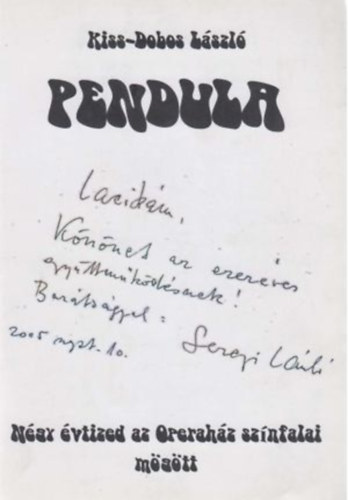 Kiss-Dobos László
PENDULA
Lacikám,
Köszönet az ezeréves
együttműködésnek!
Barátsággal:
Seregi Laci
2005 szpt. 10.
Négy évtized az Operaház színfalai
mögött